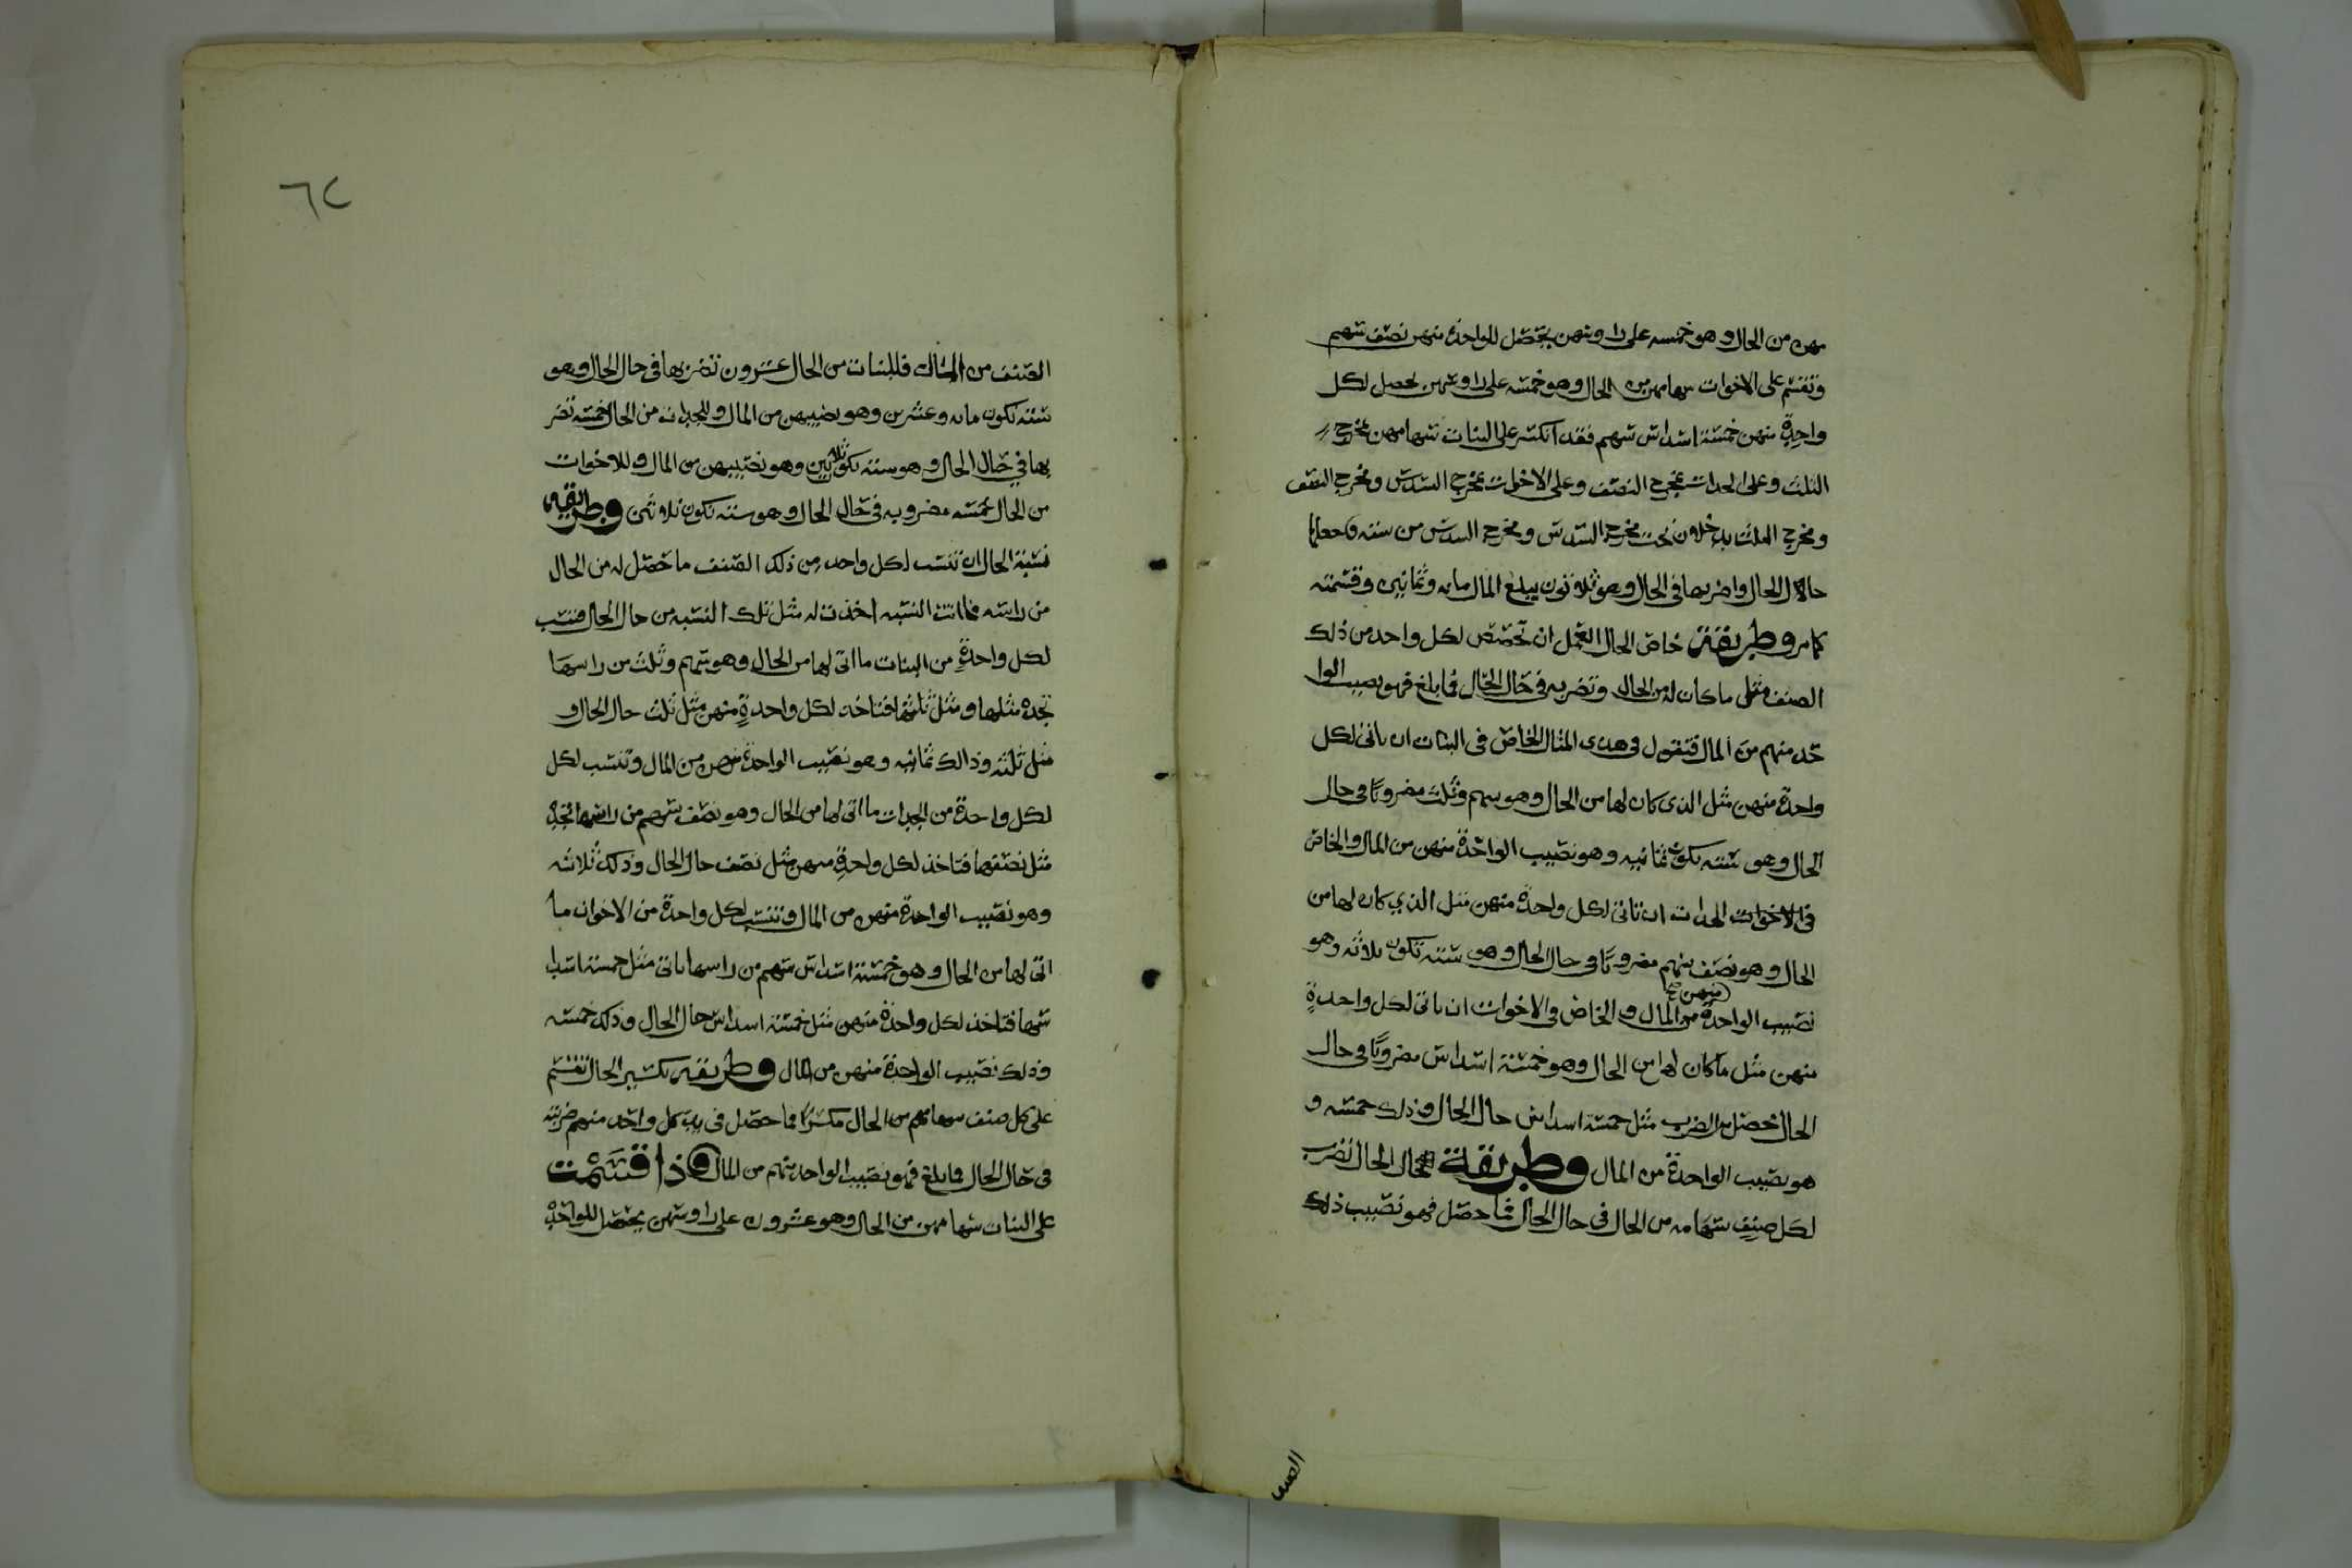 مهن من الحال وهو خمسه على راوسهن يحصل للواحدة منهن نصف سهم
وتقسم على الاخوات سهامهن من الحال وهو خمسه على راوسهن يحصل لكل
واحدةٍ منهن خمسة اسداس سهم فقد انكسر على البنات سهامهن بمخرج
الثلث وعلى الجدات بمخرج النصف وعلى الاخوات بمخرج السدس ومخرج النصف
ومخرج الثلث يدخلون تحت مخرج السدس ومخرج السدس من سته فاجعلها
حال الحال واضربها في الحال وهو ثلاثون يبلغ المال مايه وثمانين وقسمته
كما مر وطريقة خاص الحال العمل ان تخصص لكل واحد من ذلك
الصنف مثل ما كان له من الحال وتضربه في حال الحال فما بلغ فهو نصيب الوا
حد منهم من المال فتقول في هدى المثال الخاص في البنات ان ياتي لكل
واحدة منهن مثل الذي كان لها من الحال وهو سهم وثلث مضروبًا في حال
الحال وهو سته تكون ثمانيه وهو نصيب الواحدة منهن من المال والخاص
في الاخوات الجدات ان تاتي لكل واحدة منهن مثل الذي كان لها من
الحال وهو نصف سهم مضروبًا في حال الحال وهو سته تكون ثلاثه وهو
نصيب الواحدة منهن من المال والخاص في الاخوات ان ياتي لكل واحدةٍ
منهن مثل ما كان لها من الحال وهو خمسة اسداس مضروبًا في حال
الحال تحصل من الضرب مثل خمسة اسداس حال الحال وذلك خمسه و
هو نصيب الواحدة من المال وطريقة حال الحال تضرب
لكل صنفٍ سهامه من الحال في حال الحال فما حصل فهو نصيب ذلك
الصنف
٦٢
الصنف من المال فللبنات من الحال عشرون تضربها في حال الحال وهو
سته تكون مايه وعشرين وهو نصيبهن من المال وللجدات من الحال خمسه تضر
بها في حال الحال وهو سته تكون ثلاثين وهو نصيبهن من المال وللاخوات
من الحال خمسه مضروبه في حال الحال وهو سته تكون ثلاثين وطريقه
نسبة الحال ان تنسب لكل واحد من ذلك الصنف ما حصل له من الحال
من راسه فما انت النسبه اخذت له مثل تلك النسبه من حال الحال فتنسب
لكل واحدةٍ من البنات ما اتى لها من الحال وهو سهم وثلث من راسها
تجده مثلها ومثل ثلثها فتاخذ لكل واحدةٍ منهن مثل ثلث حال الحال و
مثل ثلثه وذالك ثمانيه وهو نصيب الواحدة منهن من المال وتنسب لكل
لكل واحدة من الجدات ما اتى لها من الحال وهو نصف سهم من راسها تجده
مثل نصفها فتاخذ لكل واحدةٍ منهن مثل نصف حال الحال وذلك ثلاثه
وهو نصيب الواحدة منهن من المال وتنسب لكل واحدة من الاخوات ما
اتى لها من الحال وهو خمسة اسداس سهم من راسها ياتي مثل خمسة اسدا
سها فتاخذ لكل واحدة منهن مثل خمسة اسداس حال الحال وذلك خمسه
وذلك نصيب الواحدة منهن من المال وطريقة تكسير الحال تقسم
على كل صنف سهامهم من الحال مكسرًا فما حصل في يد كل واحد منهم ضربته
في حال الحال فما بلغ فهو نصيب الواحد منهم من المال فاذا قسمت
على البنات سهامهن من الحال وهو عشرون على راوسهن يحصل للواحدة